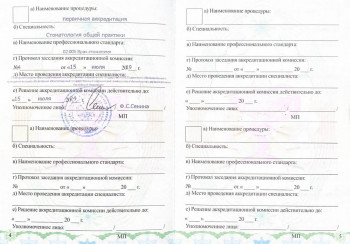 а) Наименование процедуры:
первичная аккредитация
б) Специальность:
Стоматология общей практики
в) Наименование профессионального стандарта:
г) Протокол заседания аккредитационной комиссии:
№ от «15» июля 20 г.
д) Место проведения аккредитации специалиста:
е) Решение аккредитационной комиссии действительно до:
«15» июля 20 г.
Уполномоченное лицо: / Е.С.Сихина
МП
а) Наименование процедуры:
б) Специальность:
в) Наименование профессионального стандарта:
г) Протокол заседания аккредитационной комиссии:
№ от « » 20 г.
д) Место проведения аккредитации специалиста:
е) Решение аккредитационной комиссии действительно до:
« » 20 г.
Уполномоченное лицо: /
4 МП
а) Наименование процедуры:
б) Специальность:
в) Наименование профессионального стандарта:
г) Протокол заседания аккредитационной комиссии:
№ от « » 20 г.
д) Место проведения аккредитации специалиста:
е) Решение аккредитационной комиссии действительно до:
« » 20 г.
Уполномоченное лицо: /
МП
а) Наименование процедуры:
б) Специальность:
в) Наименование профессионального стандарта:
г) Протокол заседания аккредитационной комиссии:
№ от « » 20 г.
д) Место проведения аккредитации специалиста:
е) Решение аккредитационной комиссии действительно до:
« » 20 г.
Уполномоченное лицо: /
МП 5